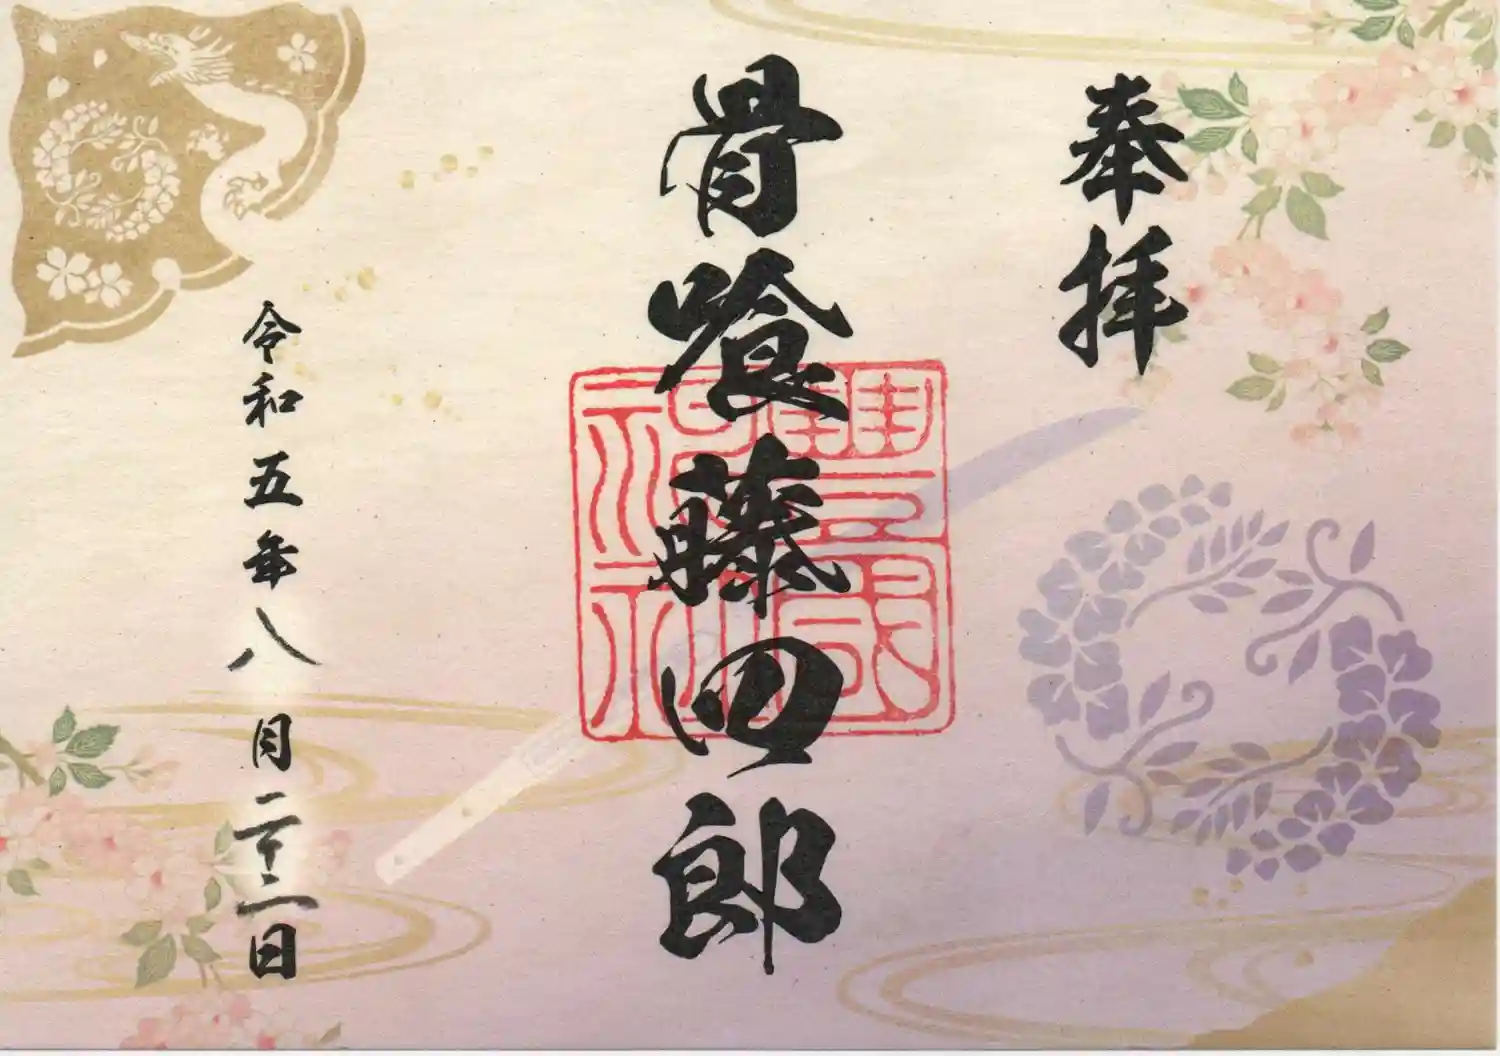 奉拝
骨喰藤四郎
豊国神社
令和五年八月二十二日